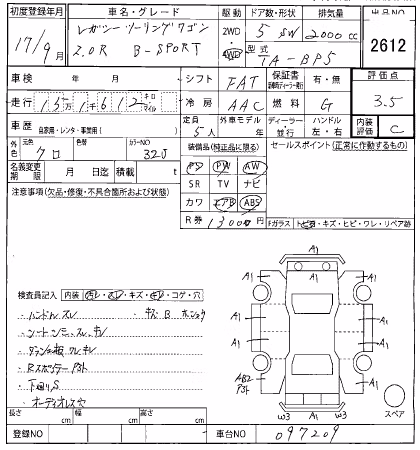 初度登録年月
車名・グレード
駆動
ドア数・形状
排気量
出品NO
17/9月
レガシーツーリングワゴン
2.0R B-SPORT
2WD
4WD
5 SW
2000 cc
型式
TA-BP5
2612
車検 年 月
シフト
FAT
保証書
有・無
評価点
3.5
走行
13万1千612
キロ
マイル
冷房
AAC
燃料
G
車歴
自家用・レンタ・事業用( )
定員
5人
外車モデル
年
ディーラー
並行
ハンドル
左・右
内装
評価
C
外色
元色
クロ
色替
カラーNO
32J
装備品(純正品に限る)
セールスポイント(正常に作動するもの)
名義変更
期限
月 日迄
積載
t
PS PW AW
SR TV ナビ
カワ エアB ABS
R券 13000円
注意事項(欠品・修復・不具合箇所および状態)
Fガラス
トビ石・キズ・ヒビ・ワレ・リペア跡
検査員記入
内装
汚レ・スレ・キズ・切レ・コゲ・穴
・ハンドルスレ
・キズB
・シート
・下回りS
・オーディオレス
A1
A1
A1
A1
A1
A1
AB2
A1
W3
A1
W3
スペア
長さ cm
幅 cm
高さ cm
登録NO
車台NO
097209